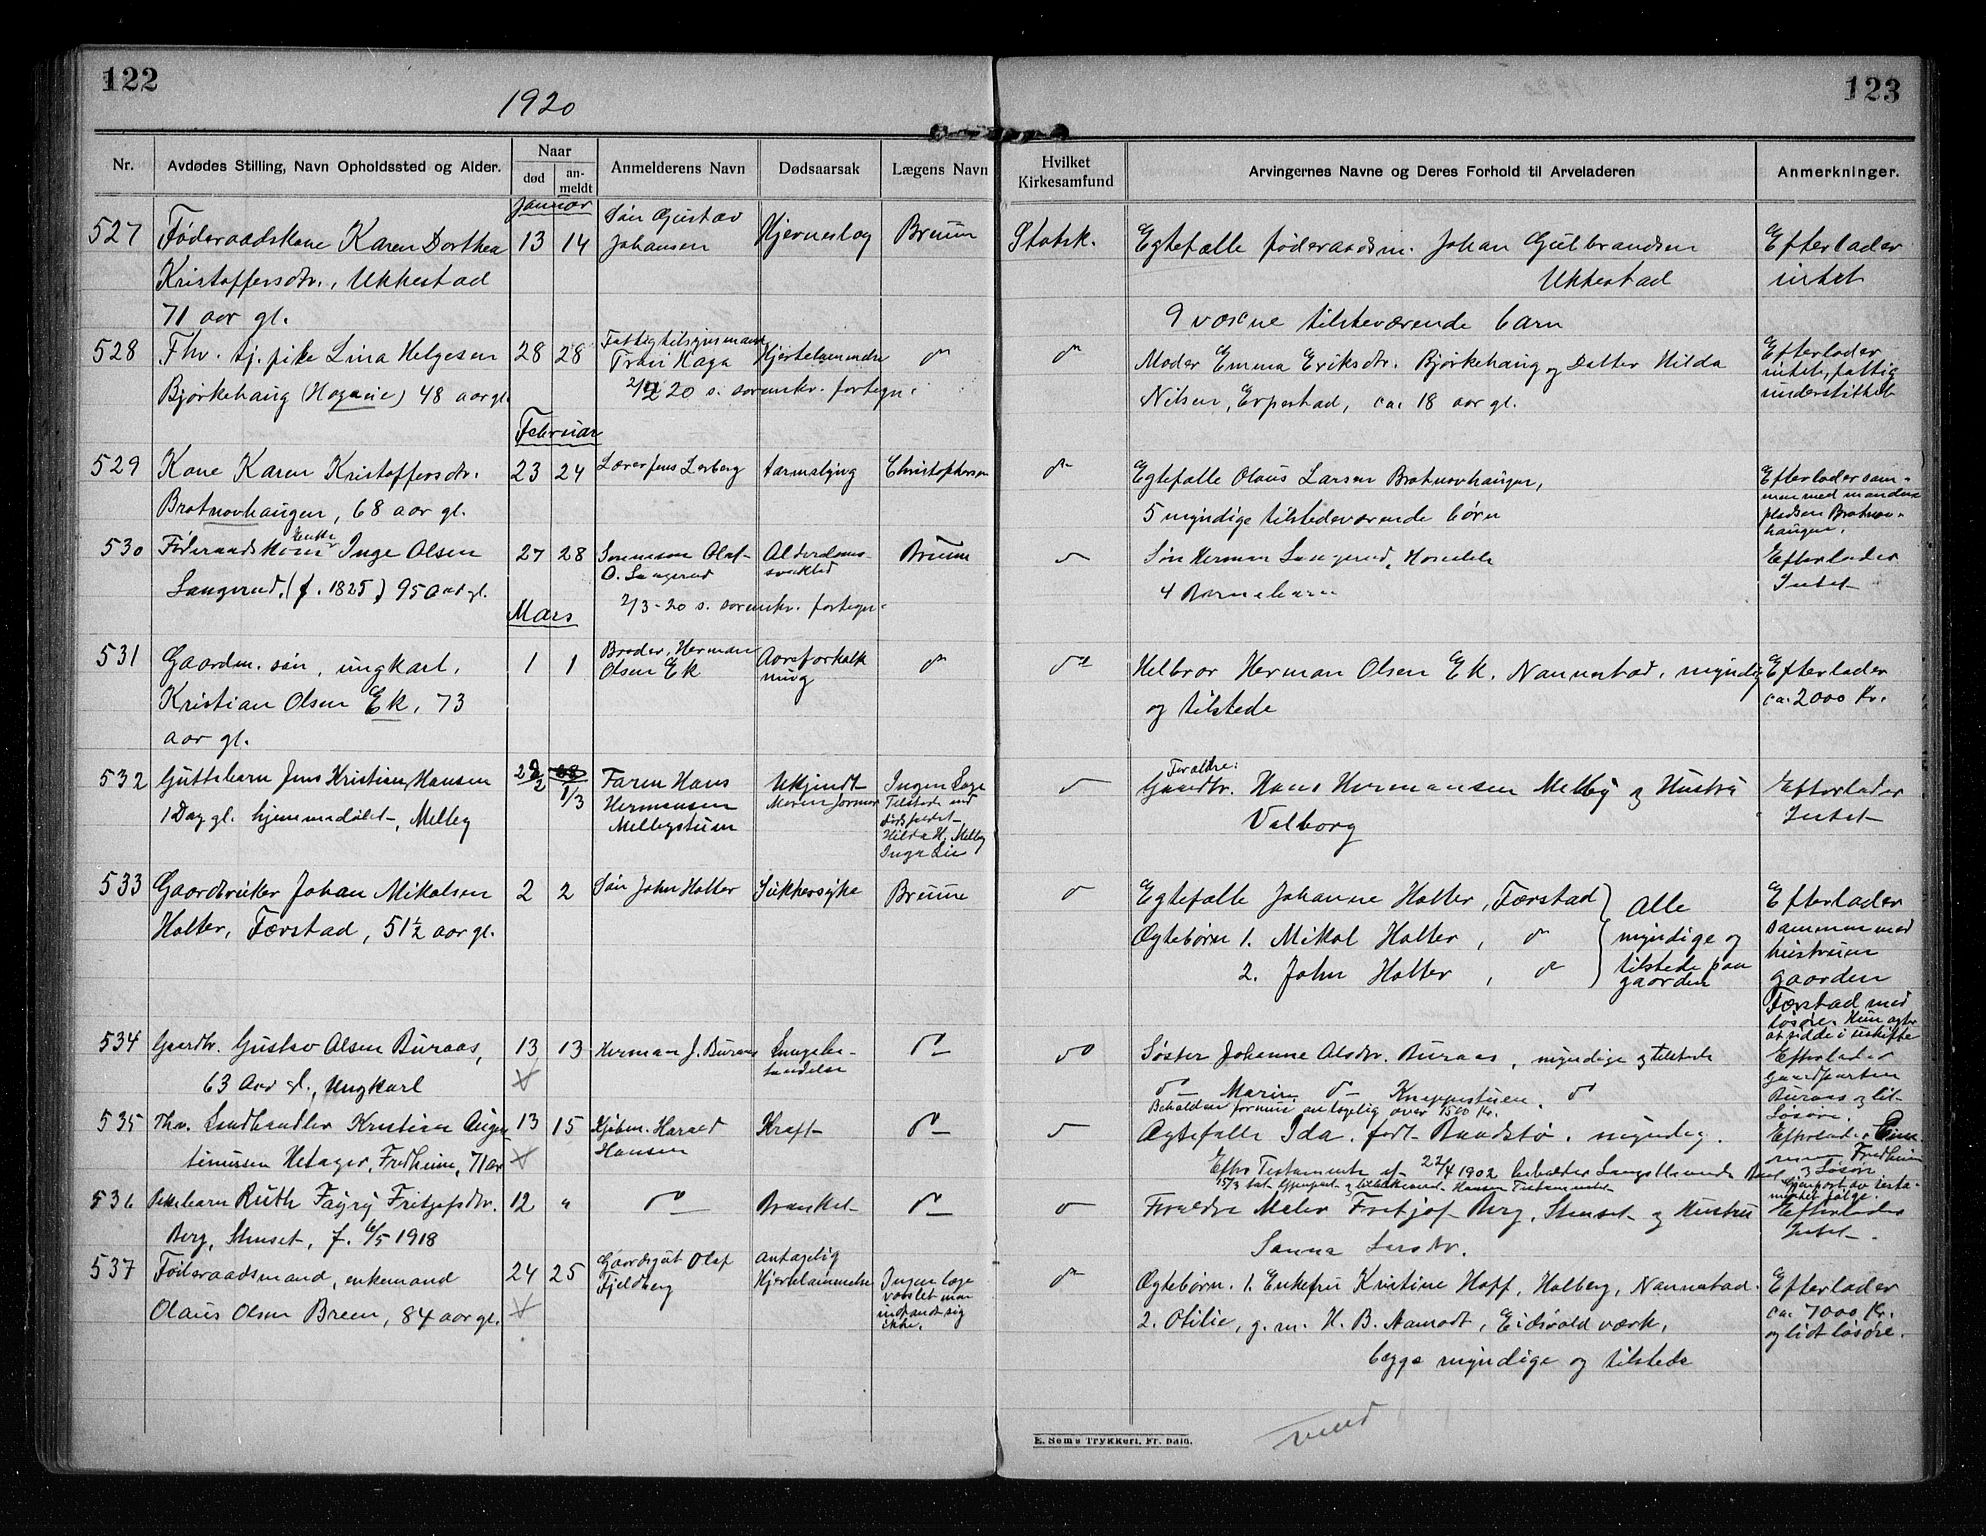 122
1920
123
Nr.
Avdødes Stilling, Navn Opholdssted og Alder.
Naar
død
an-
meldt
Anmelderens Navn
Dødsaarsak
Lægens Navn
Hvilket
Kirkesamfund
Arvingernes Navne og Deres Forhold til Arveladeren
Anmerkninger.
Januar
527 Føderaadskone Karen Dorthea
Kristoffersdtr., Ukkestad
71 aar gl.
13 14
Søn Gustav
Johansen
Hjerneslag
Bruun
Statsk.
Egtefælle føderaadsm. Johan Gulbrandsen
Ukkestad
9 voxne tilsteværende barn
Efterlader
intet
528 Fhv. tj. pike Lina Helgesen
Bjørkehaug (Hogasie) 48 aar gl.
28 28
Fattigtilsynsmand
Haga
Hjertelammelse
20 s. sorenskr. fortegn.
Moder Emma Eriksdtr. Bjørkehaug og Datter Hilda
Nilsen, Erpestad, ca. 18 aar gl.
Efterlader
intet, fattig
understøttet
Februar
529 Kone Karen Kristoffersdtr.
Bratnovhaugen, 68 aar gl.
23 24
Lærer Jens Lerberg
tarmslyng
Christophersen
Egtefælle Olaus Larsen Bratnovhaugen,
5 myndige tilstedeværende børn
Efterlader sam-
men med manden
pladsen Bratnov-
haugen.
530 Føderaadskone Enke Inge Olsen
Langerud, (f. 1825) 95 aar gl.
27 28
Sønnesøn Olaf
O. Langerud
Alderdoms-
svakhed
Bruun
2/3-20 s. sorenskr. fortegn.
Søn Herman Langerud,
4 Barnebarn
Efterlader
Intet
Mars
531 Gaardm. søn, ungkarl,
Kristian Olsen Ek, 73
aar gl.
1 1
Broder, Herman
Olsen Ek
Aareforkalk
ning
Helbror Herman Olsen Ek, Nannestad, myndig
og tilstede
Efterlader
ca. 2000 Kr.
532 Guttebarn Jens Kristian Hansen
1 Dag gl. hjemmedøbt, Melby
29/2 1/3
Faren Hans
Hermansen
Melbystuen
Ukjendt
Ingen Læge
Tilstede ved
Hilda H. Melby
Inga Lie
Foraldre:
Gaardbr. Hans Hermansen Melby og Hustru
Valborg
Efterlader
Intet
533 Gaardbruker Johan Mikalsen
Holter, Færstad, 51½ aar gl.
2 2
Søn John Holter
Sukkersyke
Bruun
Egtefælle Johanne Holter, Færstad
Ægtebørn 1. Mikal Holter,
2. John Holter,
Alle
myndige og
tilstede paa
gaarden
Efterlader
sammen med
hustruen
gaarden
Færstad med
løsøre. Hun agter
at sidde i uskifte
534 Gaardbr. Gustav Olsen Buraas,
63 Aar gl., Ungkarl
13 13
Herman J. Buraas
Lungebe-
tændelse
Søster Johanne Olsdtr. Buraas, myndige og tilstede
Marin Knappestuen.
Beholdne formue antagelig over 1500 Kr.
Efterlader
Gaardparten
Buraas og lit
Løsøre.
535 Fhv. Landhandler Kristian Augen-
tinussen Hetager, Fredheim, 71 aar
13 15
Kjøbm. Harald
Hansen
Kræft
Ægtefælle Ida, født Bundstø, myndig.
Efter Testamente af 22/4 1902
Fredheim
og Løsøre
536 Pikebarn Ruth Fagny Fritjofsdtr.
Berg, Stuset, f. 6/5 1918
12 "
Brusket
Foraldre Maler Fritjof Berg, Stuset og Hustru
Sanna Larsdtr.
Efterlader
Intet
537 Føderaadsmand, enkemand
Olaus Olsen Breen, 84 aar gl.
24 25
Gaardsgut Olaf
Fjeldberg
Antagelig
Hjertelammelse
Ingen læge
varslet man
indfandt sig
ikke.
Ægtebørn. 1. Enkefru Kristine Hoff, Holberg, Nannestad.
2. Otilie, g. m. H. B. Aamodt, Eidsvold værk,
begge myndige og tilstede
Efterlader
ca. 7000 Kr.
og lidt løsøre.
E. Sem's Trykkeri, Fr. hald.
vend